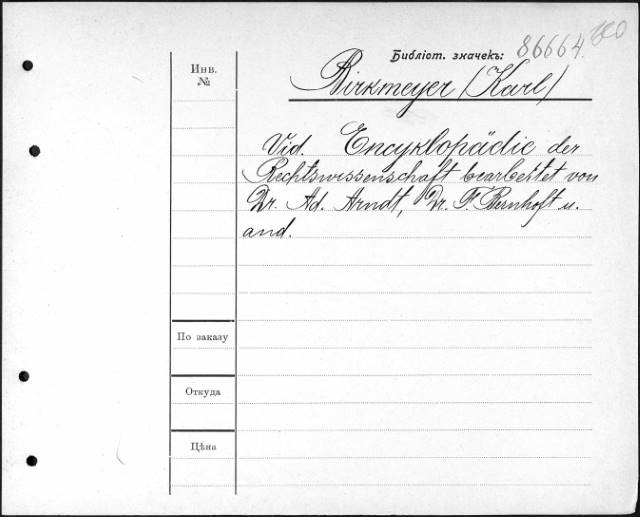 Библіот. значекъ: 86664.
Инв.
№
Birkmeyer (Karl)
Vid. Encyklopädie der
Rechtswissenschaft bearbeitet von
Dr. Ad. Arndt, Dr. F. Bernhoft u.
and.
По заказу
Откуда
Цѣна